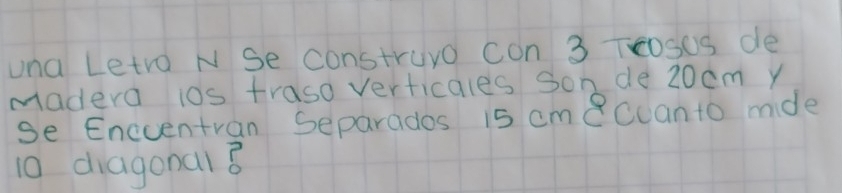 una Letra N Se construyo con 3 Trosos de
Madera los traso verticales son de 20cm y
Se Encuentran Separados 15 cm ¿Cuanto mide
la diagonal?